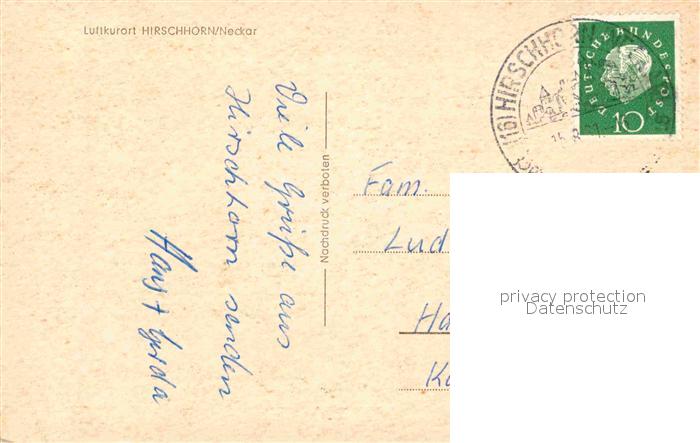 Luftkurort HIRSCHHORN/Neckar
Viele Grüße aus
Hirschhorn senden
Hans + Gerda
Nachdruck verboten
(16) HIRSCHHORN
DEUTSCHE BUNDESPOST
10
Fam.
Lud
Ha
privacy protection
Datenschutz